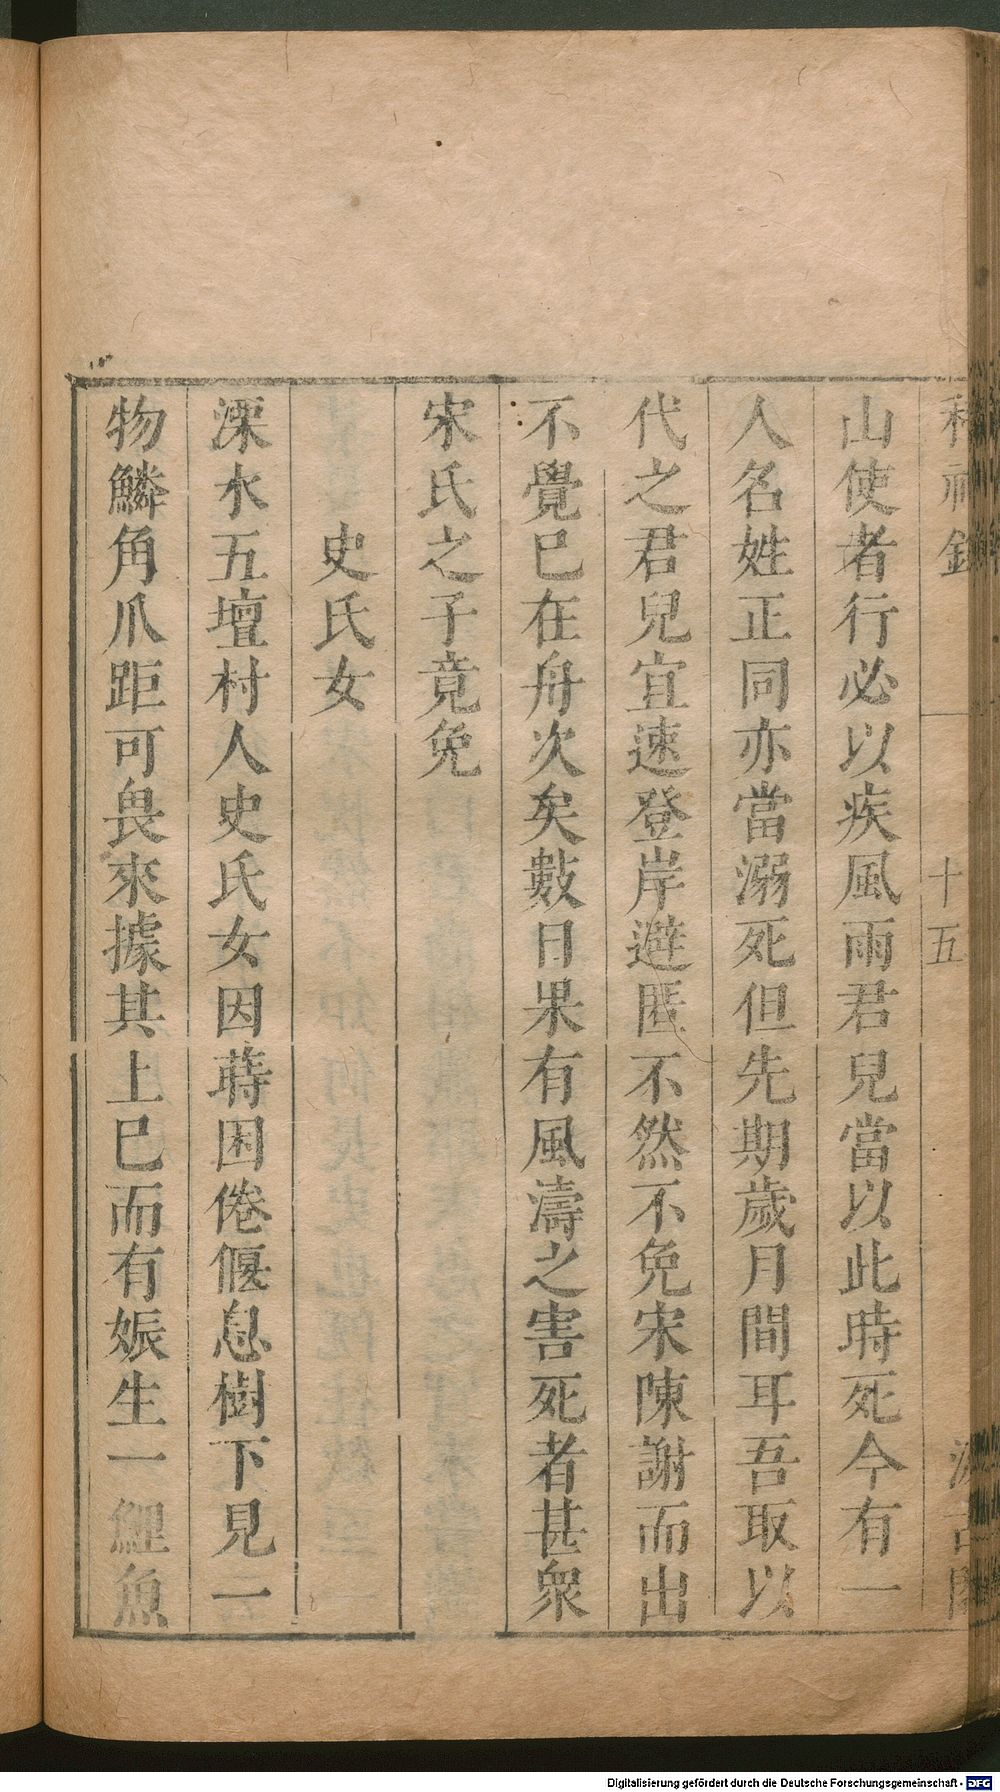 十五
山使者行必以疾風雨君兒當以此時死今有一
人名姓正同亦當溺死但先期歲月間耳吾取以
代之君兒宜速登岸避匿不然不免宋陳謝而出
不覺巳在舟次矣數日果有風濤之害死者甚衆
宋氏之子竟免
史氏女
溧水五壇村人史氏女因蒔困倦偃息樹下見一
物鱗角爪距可畏來據其上巳而有娠生一鯉魚
Digitalisierung gefördert durch die Deutsche Forschungsgemeinschaft - DFG